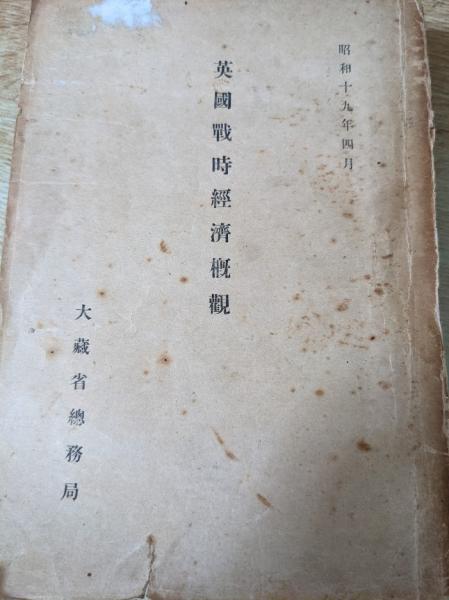 昭和十九年四月
英國戰時經濟概觀
大藏省總務局